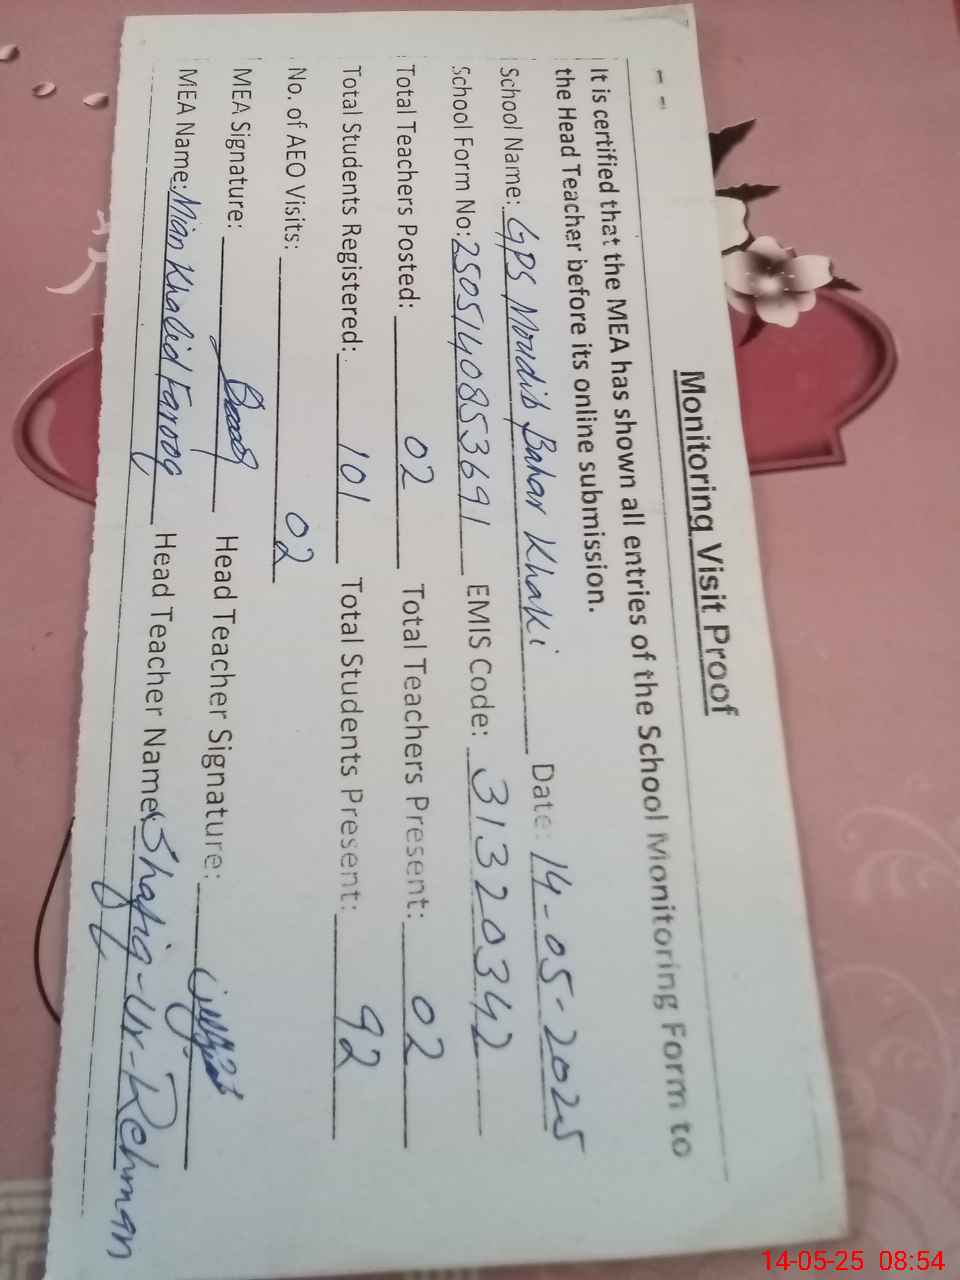 Monitoring Visit Proof
It is certified that the MEA has shown all entries of the School Monitoring Form to
the Head Teacher before its online submission.
School Name: GPS Moudib Bahar Khaki Date: 14-05-2025
School Form No: 2505140853691 EMIS Code: 31320342
Total Teachers Posted: 02 Total Teachers Present: 02
Total Students Registered: 101 Total Students Present: 92
No. of AEO Visits: 02
MEA Signature: Head Teacher Signature:
MEA Name: Mian Khalid Farooq Head Teacher Name: Shafiq-Ur-Rehman
14-05-25 08:54